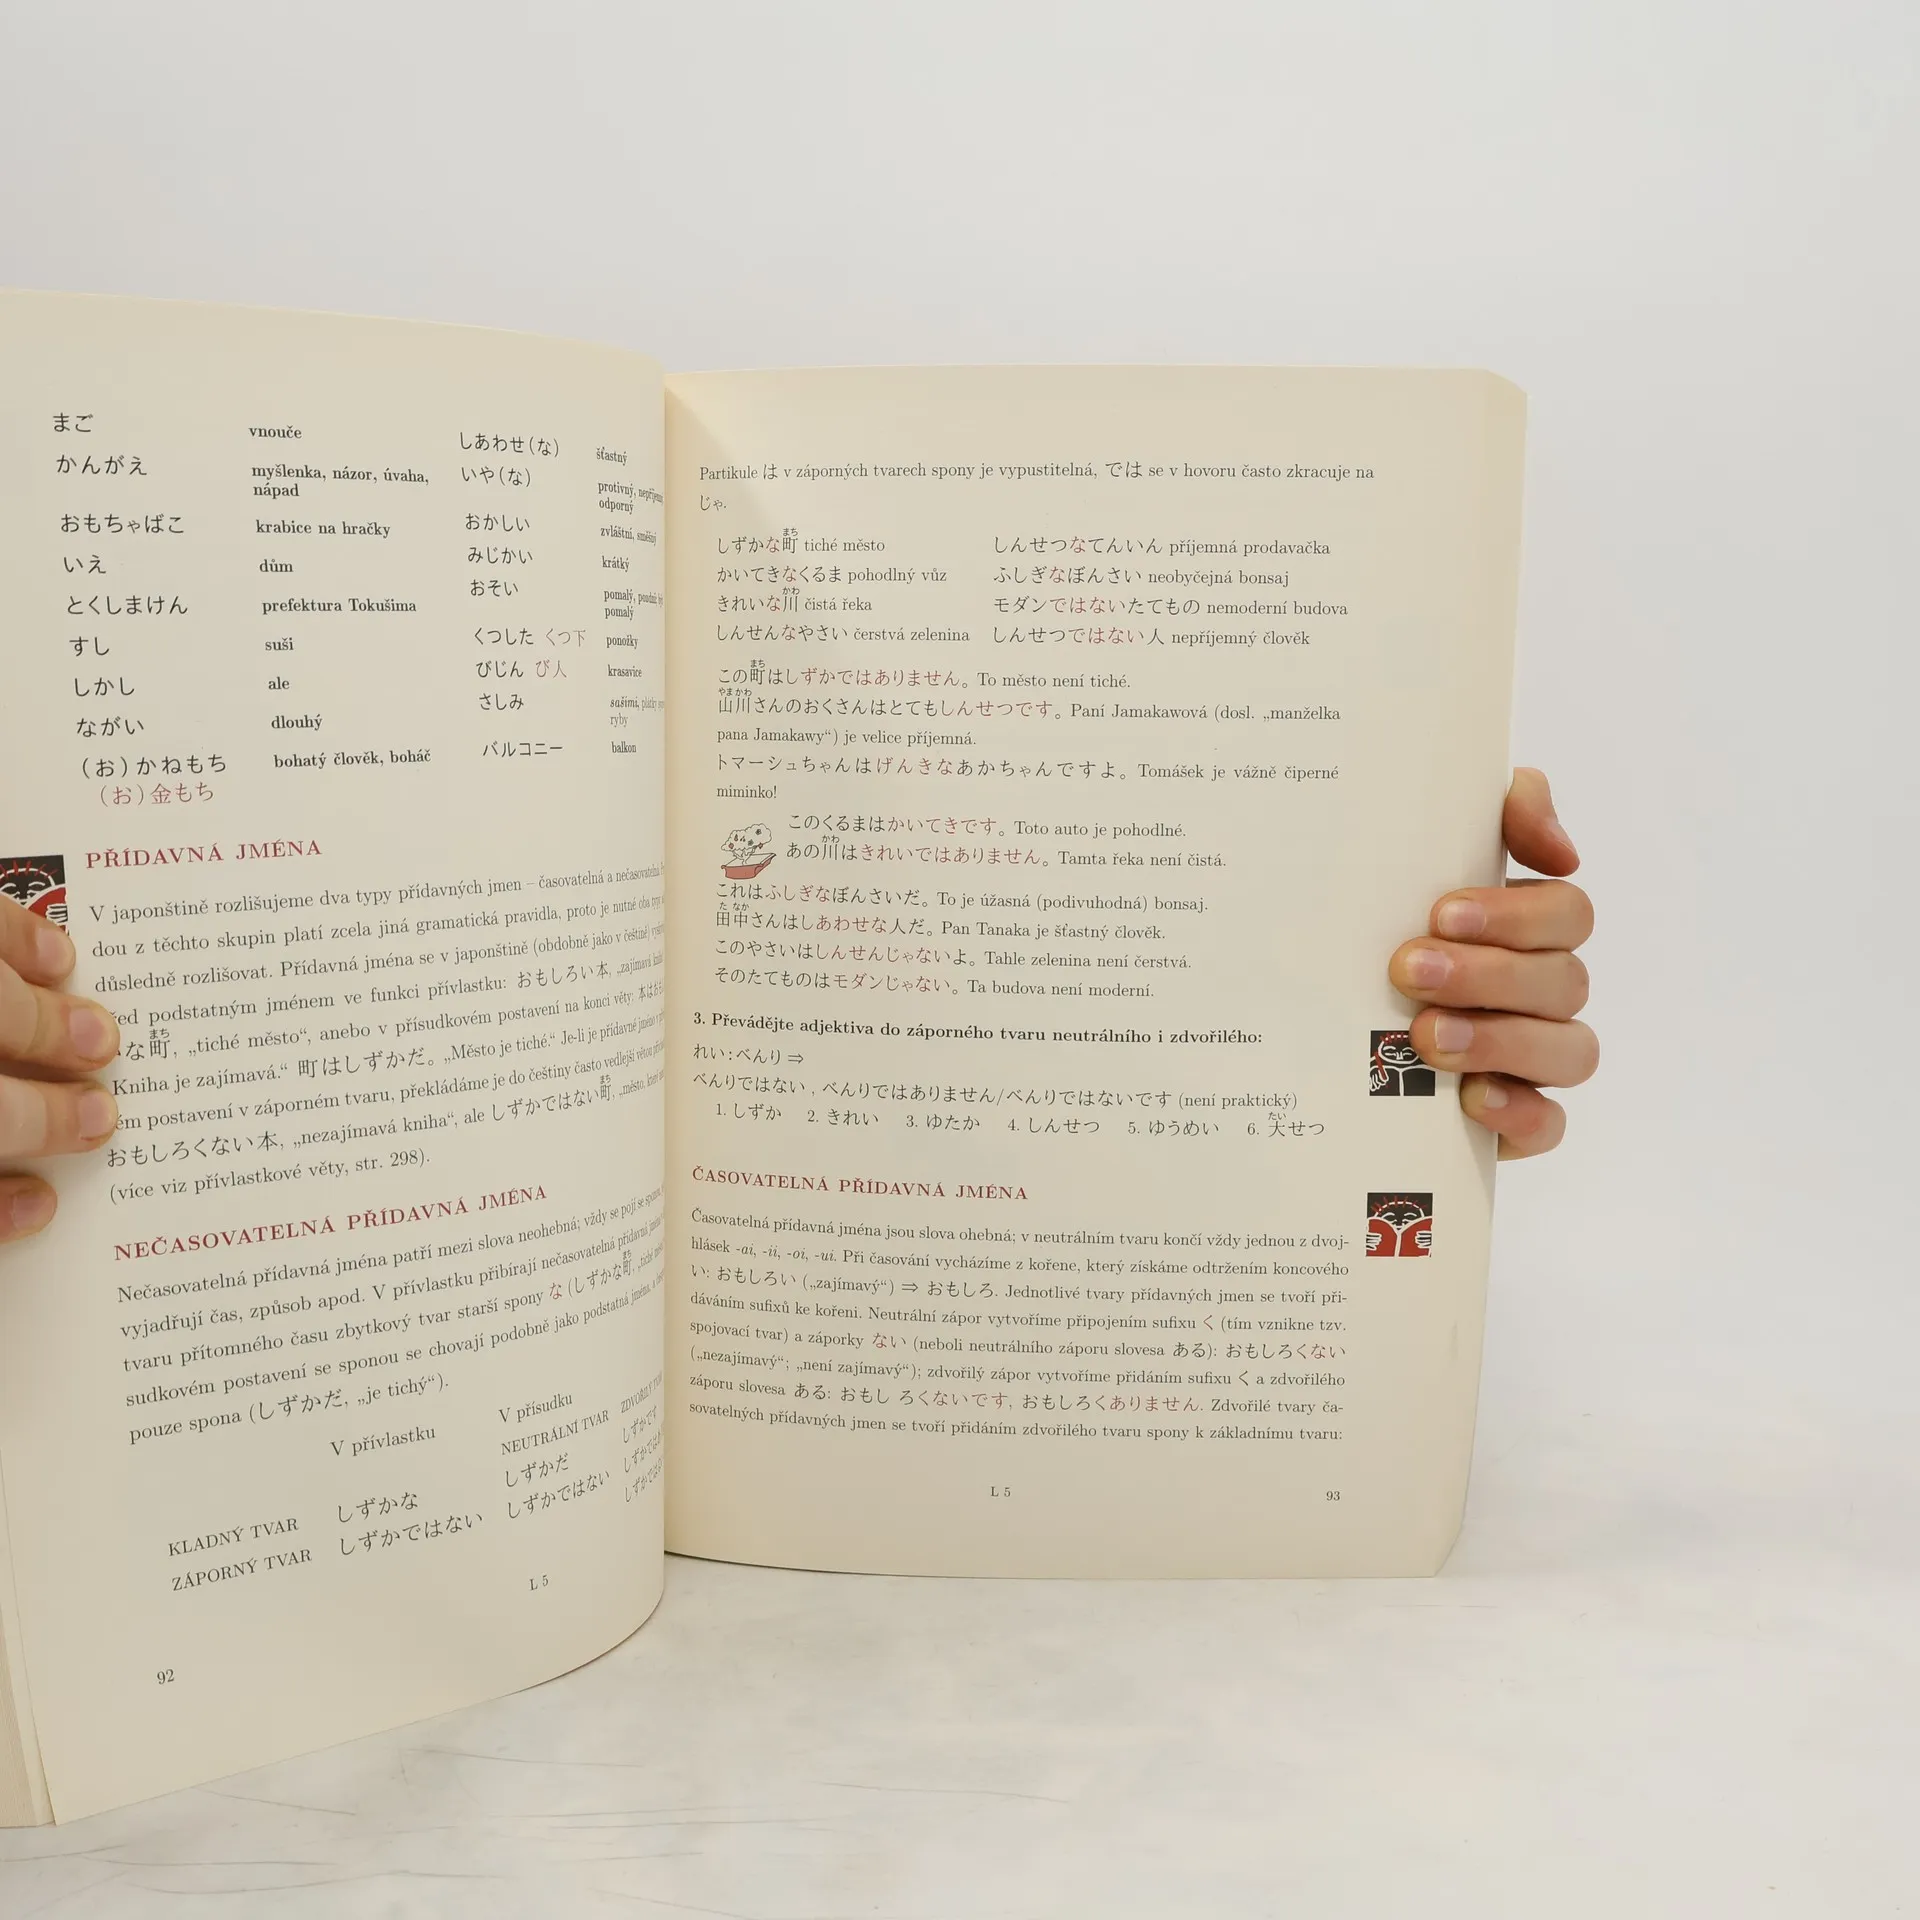 まご vnouče
かんがえ myšlenka, názor, úvaha,
nápad
おもちゃばこ krabice na hračky
いえ dům
とくしまけん prefektura Tokušima
すし suši
しかし ale
ながい dlouhý
(お)かねもち bohatý člověk, boháč
(お)金もち
しあわせ(な) šťastný
いや(な) protivný, nepříjemný
odporný
おかしい zvláštní, směšný
みじかい krátký
おそい pomalý,
pomalý
くつした くつ下 ponožky
びじん び人 krasavice
さしみ sašimi, plátky
ryby
バルコニー balkon
PŘÍDAVNÁ JMÉNA
V japonštině rozlišujeme dva typy přídavných jmen – časovatelná a nečasovatelná
dou z těchto skupin platí zcela jiná gramatická pravidla, proto je nutné oba typy
důsledně rozlišovat. Přídavná jména se v japonštině (obdobně jako v češtině)
před podstatným jménem ve funkci přívlastku: おもしろい本, „zajímavá
な町, „tiché město“, anebo v přísudkovém postavení na konci věty: 本は
まち
Kniha je zajímavá.“ 町はしずかだ。„Město je tiché.“ Je-li je přídavné jméno v
ém postavení v záporném tvaru, překládáme je do češtiny často vedlejší větou
おもしろくない本, „nezajímavá kniha“, ale しずかではない町, „město, které
まち
(více viz přívlastkové věty, str. 298).
NEČASOVATELNÁ PŘÍDAVNÁ JMÉNA
Nečasovatelná přídavná jména patří mezi slova neohebná; vždy se pojí se sponou,
vyjadřují čas, způsob apod. V přívlastku přibírají nečasovatelná přídavná jména
tvaru přítomného času zbytkový tvar starší spony な (しずかな町, „tiché
まち
sudkovém postavení se sponou se chovají podobně jako podstatná jména,
pouze spona (しずかだ, „je tichý“).
V přívlastku V přísudku
NEUTRÁLNÍ TVAR ZDVOŘILÝ TVAR
KLADNÝ TVAR しずかな しずかだ しずかです
ZÁPORNÝ TVAR しずかではない しずかではない
L 5
92
Partikule は v záporných tvarech spony je vypustitelná, では se v hovoru často zkracuje na
じゃ.
まち
しずかな町 tiché město しんせつなてんいん příjemná prodavačka
かいてきなくるま pohodlný vůz ふしぎなぼんさい neobyčejná bonsaj
かわ
きれいな川 čistá řeka モダンではないたてもの nemoderní budova
しんせんなやさい čerstvá zelenina しんせつではない人 nepříjemný člověk
まち
この町はしずかではありません。To město není tiché.
やまかわ
山川さんのおくさんはとてもしんせつです。Paní Jamakawová (dosl. „manželka
pana Jamakawy“) je velice příjemná.
トマーシュちゃんはげんきなあかちゃんですよ。Tomášek je vážně čiperné
miminko!
このくるまはかいてきです。Toto auto je pohodlné.
かわ
あの川はきれいではありません。Tamta řeka není čistá.
これはふしぎなぼんさいだ。To je úžasná (podivuhodná) bonsaj.
た なか
田中さんはしあわせな人だ。Pan Tanaka je šťastný člověk.
このやさいはしんせんじゃないよ。Tahle zelenina není čerstvá.
そのたてものはモダンじゃない。Ta budova není moderní.
3. Převádějte adjektiva do záporného tvaru neutrálního i zdvořilého:
れい:べんり⇒
べんりではない, べんりではありません/べんりではないです (není praktický)
たい
1. しずか 2. きれい 3. ゆたか 4. しんせつ 5. ゆうめい 6. 大せつ
ČASOVATELNÁ PŘÍDAVNÁ JMÉNA
Časovatelná přídavná jména jsou slova ohebná; v neutrálním tvaru končí vždy jednou z dvoj-
hlásek -ai, -ii, -oi, -ui. Při časování vycházíme z kořene, který získáme odtržením koncového
い: おもしろい („zajímavý“) ⇒ おもしろ. Jednotlivé tvary přídavných jmen se tvoří při-
dáváním sufixů ke kořeni. Neutrální zápor vytvoříme připojením sufixu く (tím vznikne tzv.
spojovací tvar) a záporky ない (neboli neutrálního záporu slovesa ある): おもしろくない
(„nezajímavý“; „není zajímavý“); zdvořilý zápor vytvoříme přidáním sufixu く a zdvořilého
záporu slovesa ある: おもし ろくないです, おもしろくありません. Zdvořilé tvary ča-
sovatelných přídavných jmen se tvoří přidáním zdvořilého tvaru spony k základnímu tvaru:
L 5
93